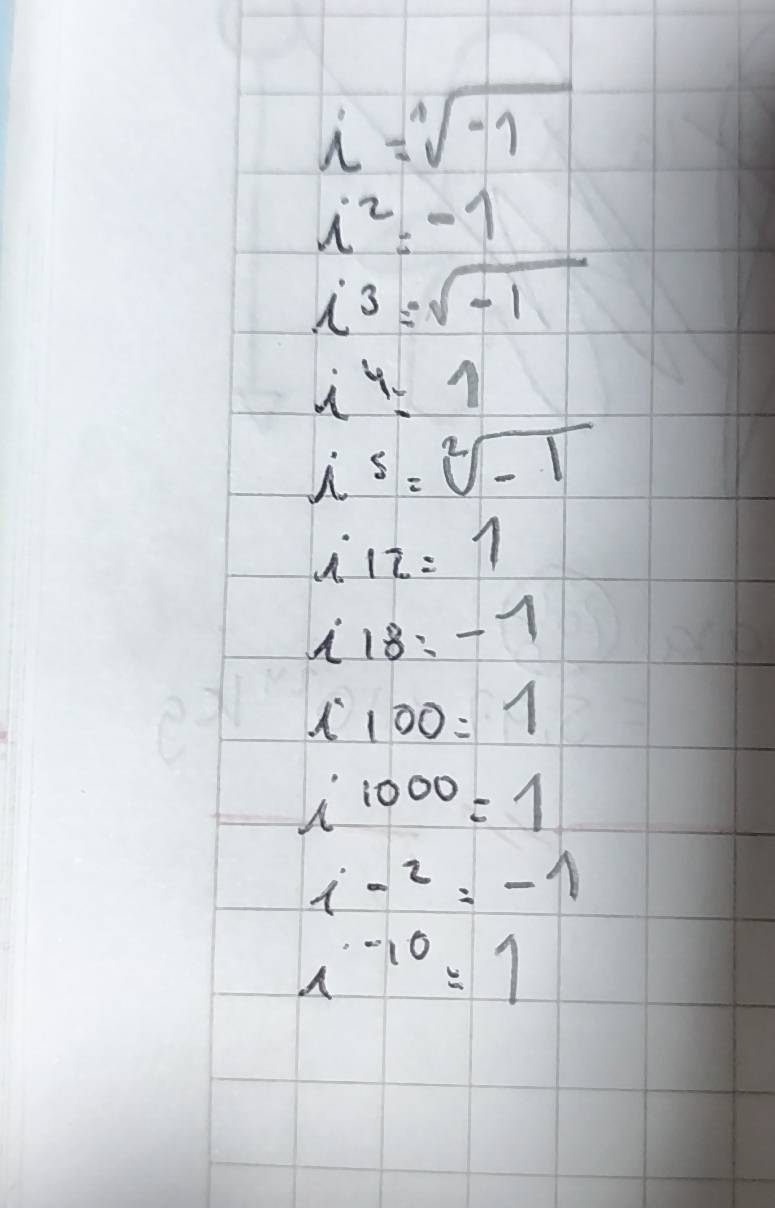 i = ¹√-1
i² = -1
i³ = √-1
i⁴ = 1
i⁵ = ²√-1
i12 = 1
i18 = -1
i100 = 1
i¹⁰⁰⁰ = 1
i-² = -1
i⁻¹⁰ = 1